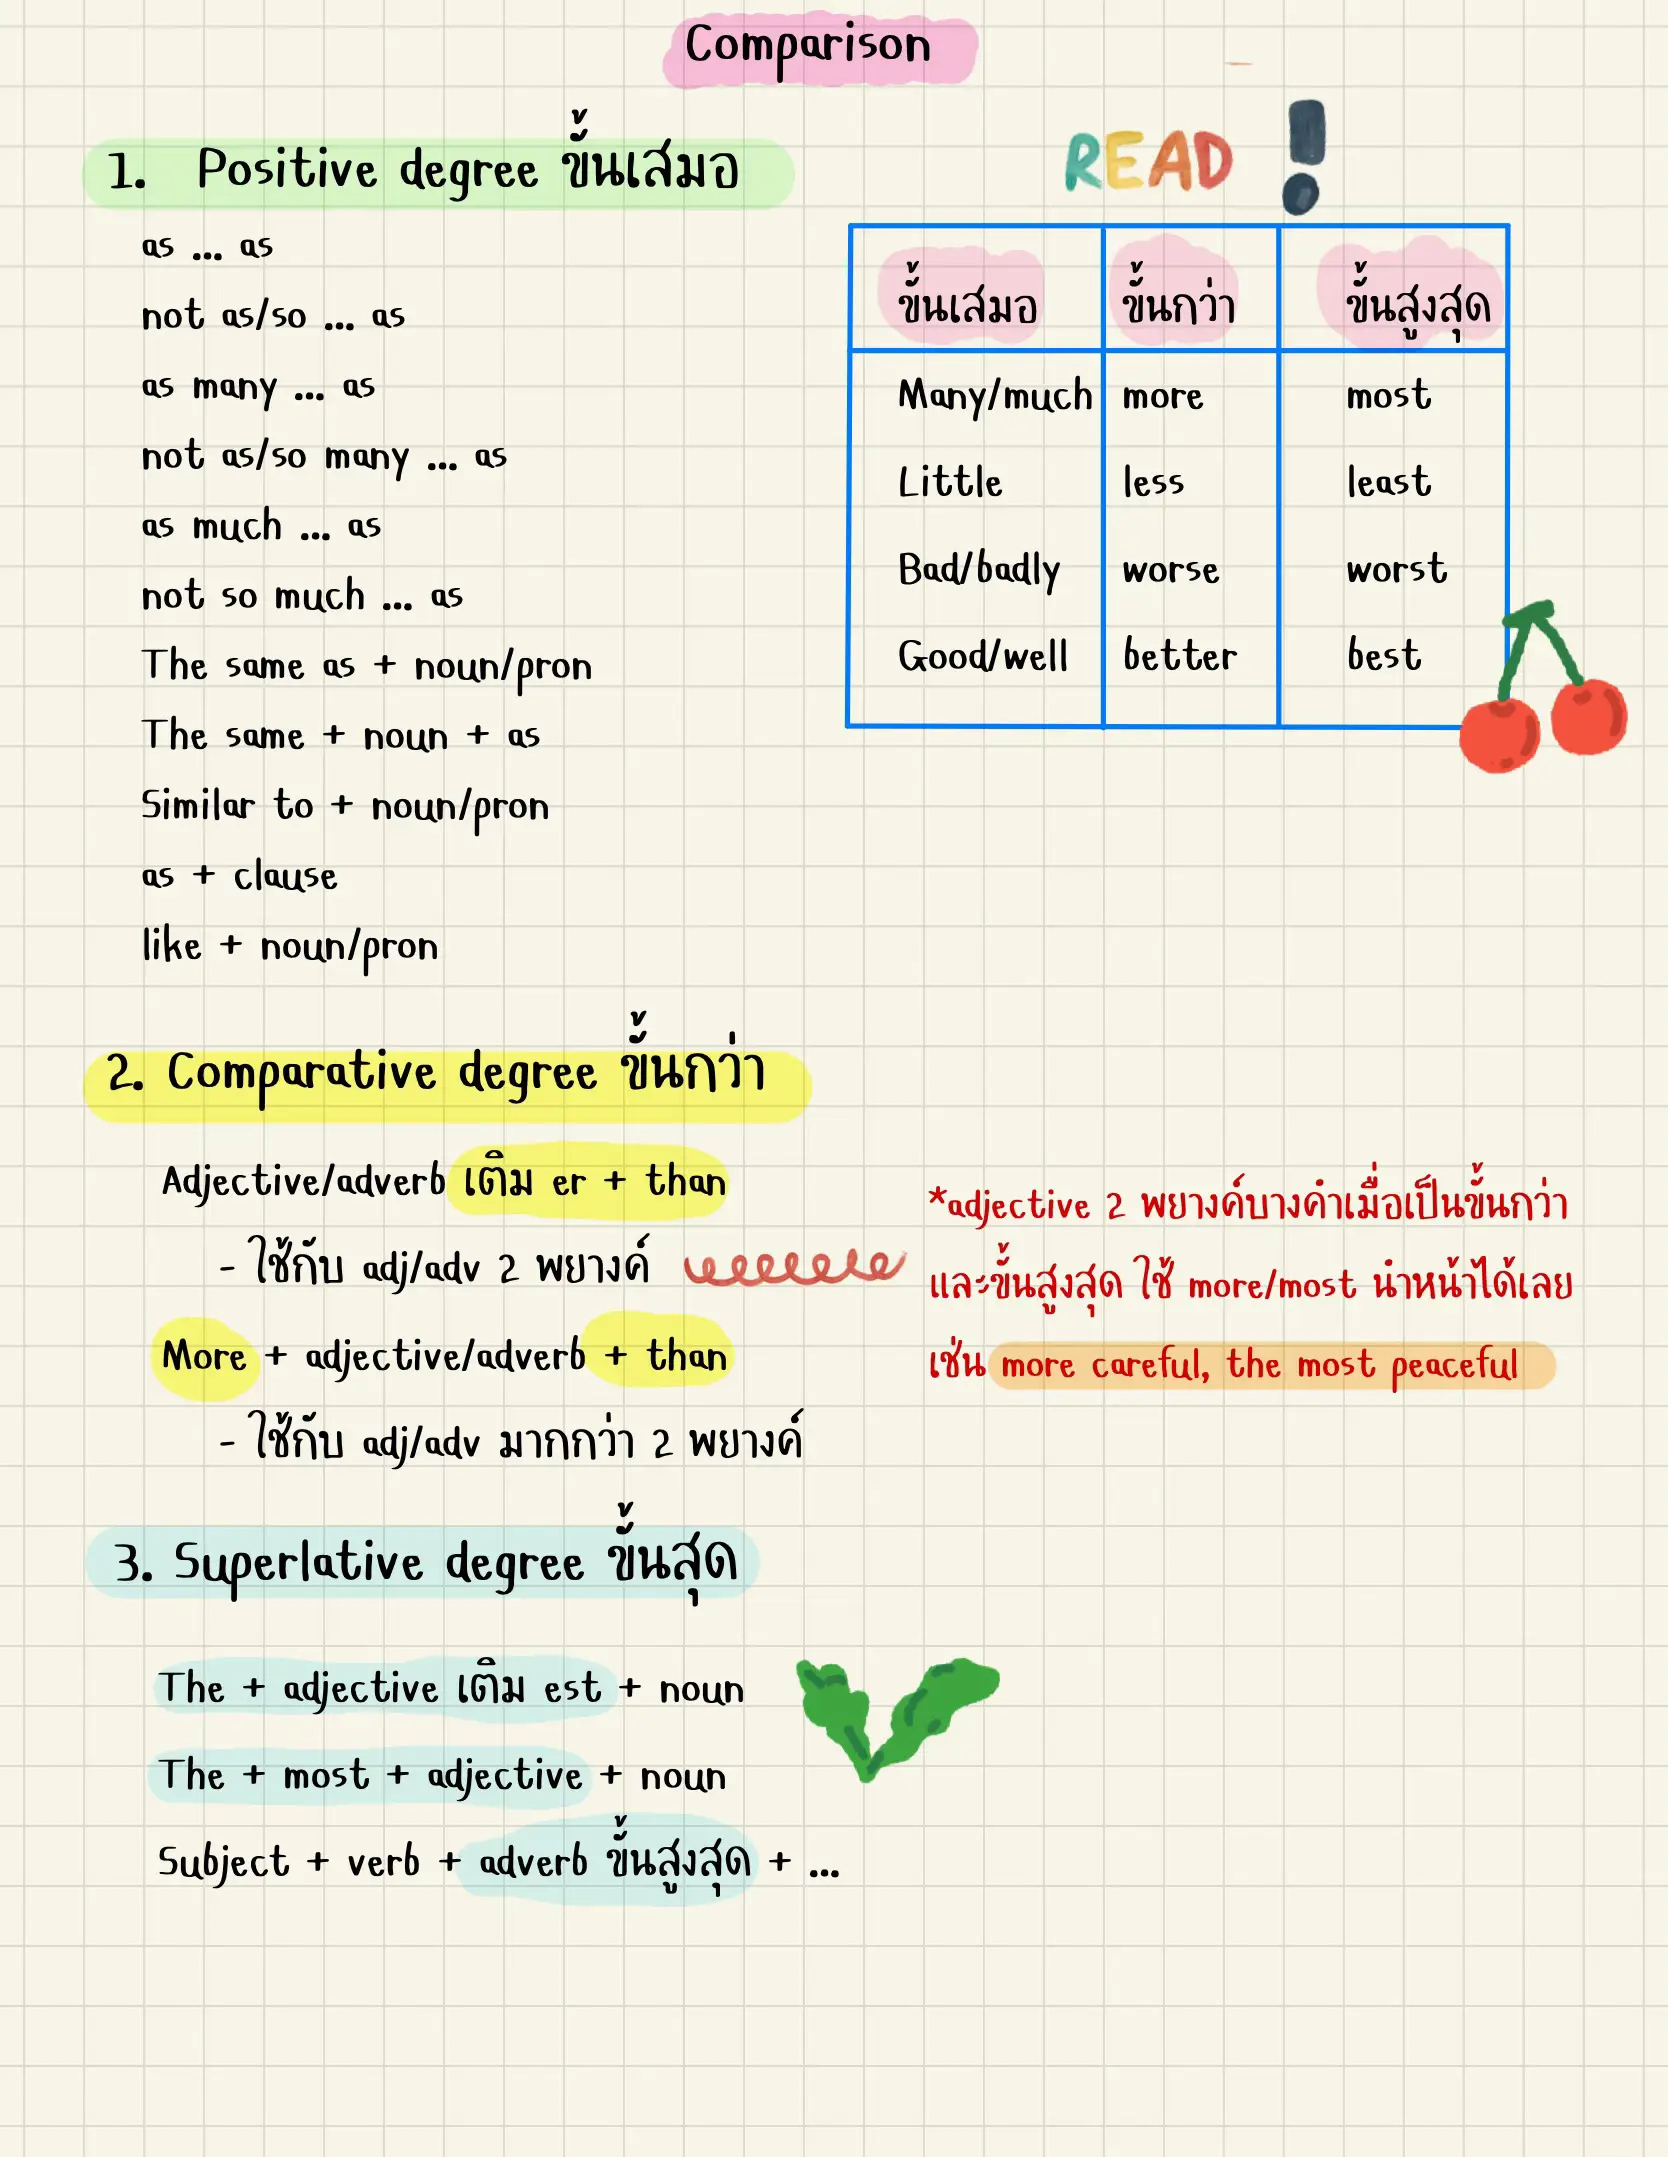 Comparison
1. Positive degree ขั้นเสมอ
as ... as
not as/so ... as
as many ... as
not as/so many ... as
as much ... as
not so much ... as
The same as + noun/pron
The same + noun + as
Similar to + noun/pron
as + clause
like + noun/pron
READ !
ขั้นเสมอ ขั้นกว่า ขั้นสูงสุด
Many/much more most
Little less least
Bad/badly worse worst
Good/well better best
2. Comparative degree ขั้นกว่า
Adjective/adverb เติม er + than
- ใช้กับ adj/adv 2 พยางค์
More + adjective/adverb + than
- ใช้กับ adj/adv มากกว่า 2 พยางค์
*adjective 2 พยางค์บางคำเมื่อเป็นขั้นกว่า
และขั้นสูงสุด ใช้ more/most นำหน้าได้เลย
เช่น more careful, the most peaceful
3. Superlative degree ขั้นสุด
The + adjective เติม est + noun
The + most + adjective + noun
Subject + verb + adverb ขั้นสูงสุด + ...